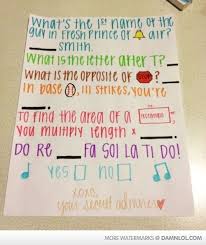 What's the 1st name of the
guy in Fresh Prince of air?
smith.
What is the letter after T?
What is the opposite of ?
In base , III strikes, you're
To find the area of a
you multiply length x
DO RE FA SO LA TI DO!
YES NO
xoxo,
your secret admirer
MORE WATERMARKS @ DAMNLOL.COM